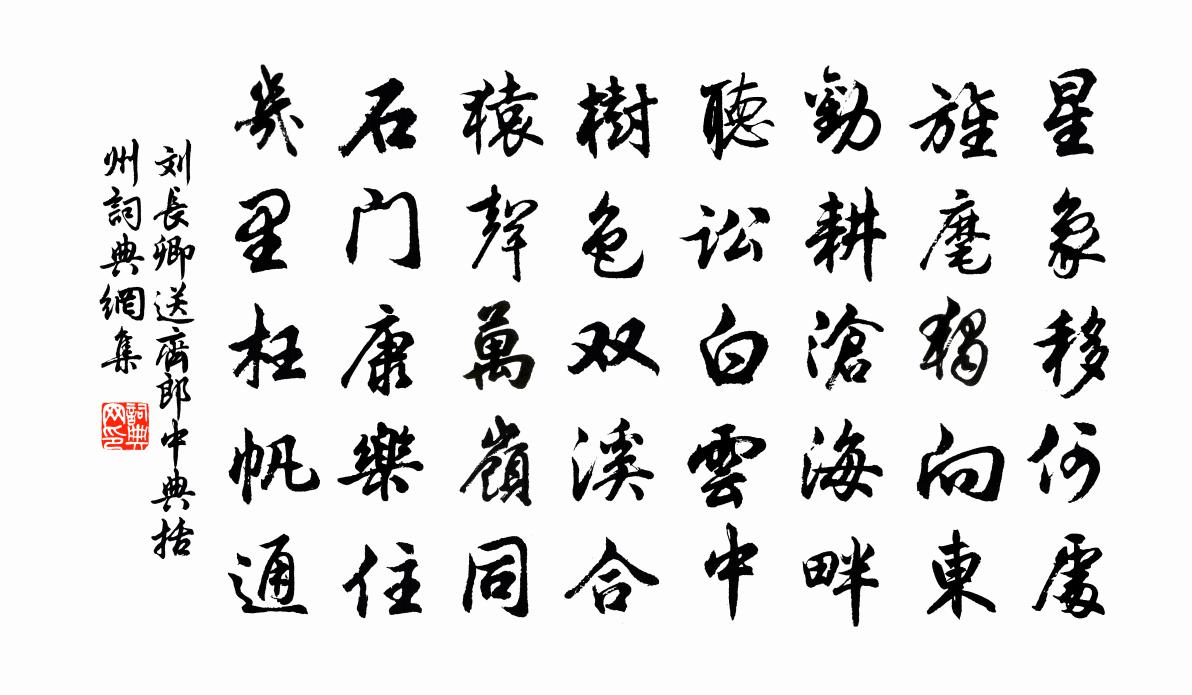 星象移何處
旌麾獨向東
勸耕滄海畔
聽訟白雲中
樹色双溪合
猿聲萬嶺同
石门康樂住
幾里枉帆通
刘長卿送齊郎中典括
州詞典網集
詞典
网印